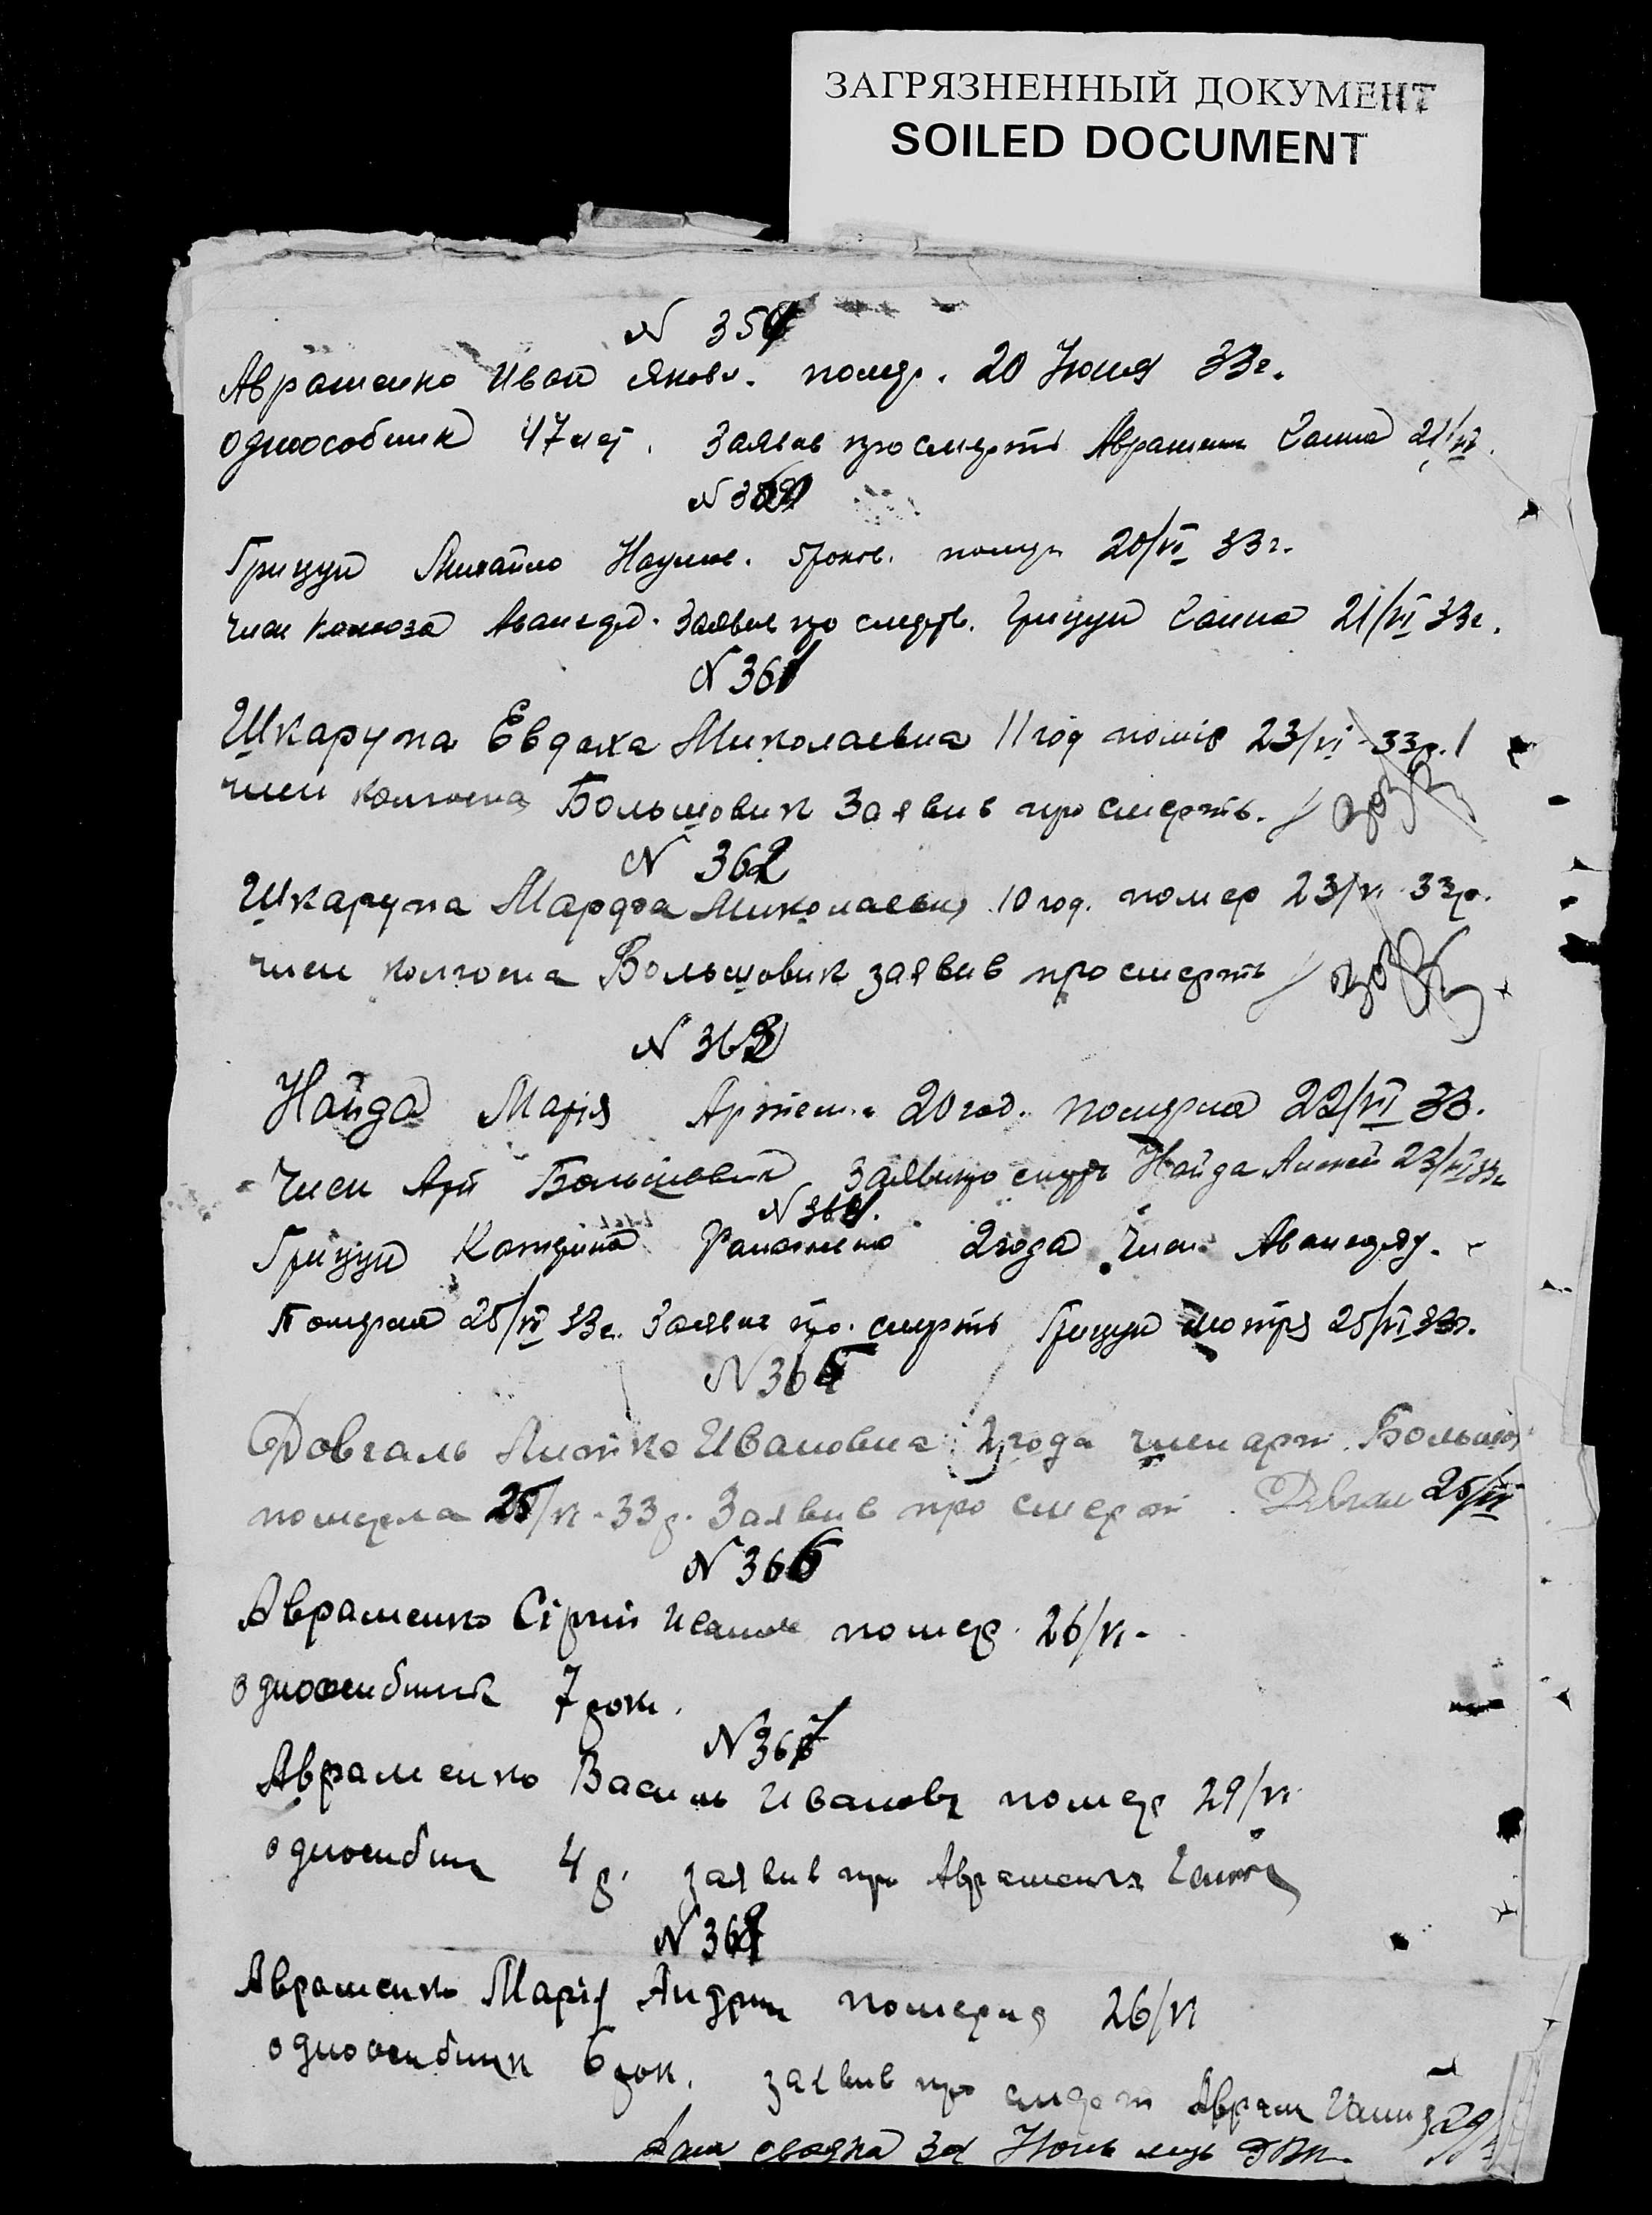 ЗАГРЯЗНЕННЫЙ ДОКУМЕНТ
SOILED DOCUMENT
N 359
Авраменко Иван Яковл. помер. 20 Июня 33г.
одноособник 47 лет. Заявив про смерть Авраменко Ганна 21/VI.
N 360
Грицун Михайло Наумов. помер 20/VI 33г.
член Авангард. Заявив про смерть. Грицун Ганна 21/VI 33г.
N 361
Шкарупа Евдоха Миколаевна 11 год помір 23/VI-33р.
член колгоспа Большовик Заявив про смерть.
N 362
Шкарупа Марфа Миколаевна 10 год. помер 23/VI 33р.
член колгоспа Большовик заявив про смерть
N 363
Найда Марія Артем. 20 год. померла 22/VI 33.
Член Арт Большовик Заявив про смерть Найда 23/VI 33г
N 364.
Грицун Катерина 2 года член Авангард.
Померла 25/VI 33г. Заявив про смерть Грицун Мотря 25/VI 33г.
N 365
Довгаль Ивановна 2 года член арт. Большов
померла 25/VI-33р. Заявив про смерт. Довгал 25/VI
N 366
Авраменко Сіргій Иванов помер. 26/VI-
одноосибник 7 рок.
N 367
Авраменко Василь Иванов помер 29/VI
одноосибник 4 р. заявив про Авраменко Ганна
N 368
Авраменко Марія Андри померла 26/VI
одноосибник 6 рок. заявив про смерт Аврам Ганна 29/
сводка за Июнь мць